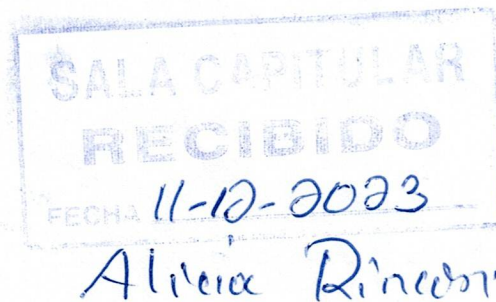 SALA CAPITULAR
RECIBIDO
FECHA 11-12-2023
Alicia Rincón